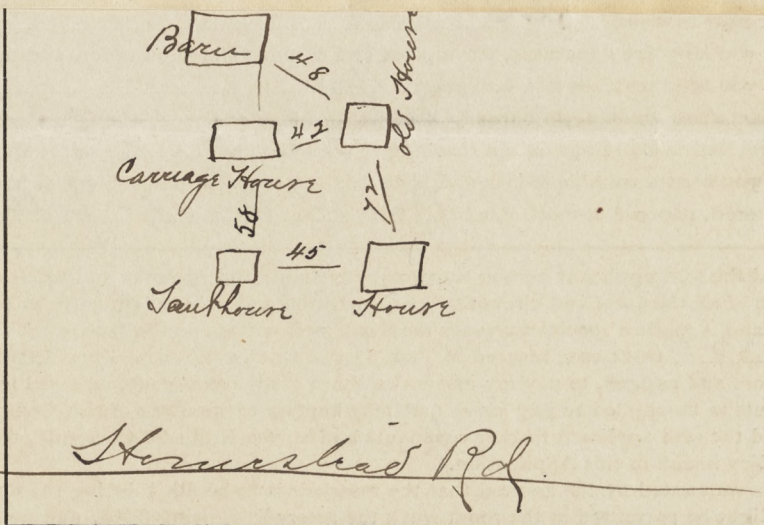 Barn
48
42
old House
Carriage House
58
72
45
Tankhouse
House
Homestead Rd.